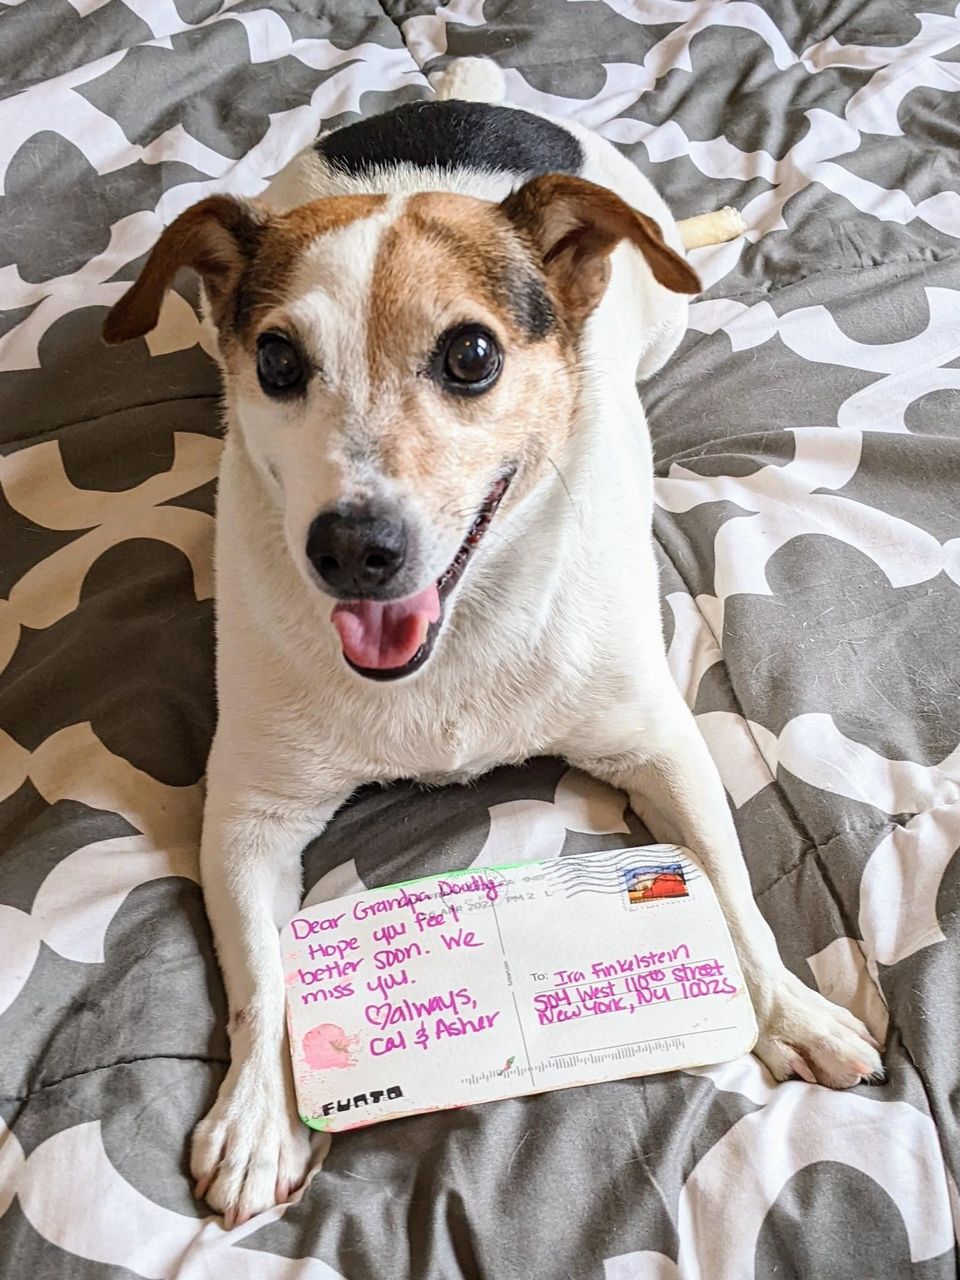 Dear Grandpa Doodly
Hope you feel
better soon. We
miss you.
♡always,
Cal & Asher
FUNTO
APR 2021 PM 2 L
To: Ira Finkelstein
504 West 110th Street
New York, NY 10025